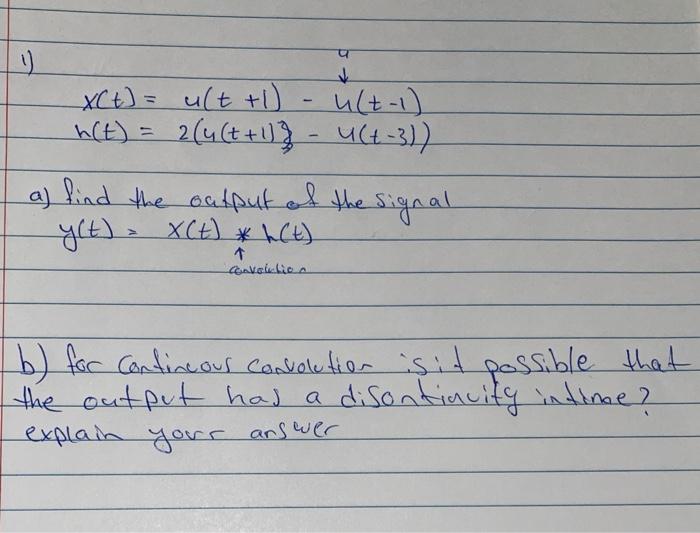 1)
u
↓
x(t) = u(t +1) - u(t-1)
h(t) = 2(u(t+1)} - u(t-3))
a) find the output of the signal
y(t) = x(t) * h(t)
↑
convolution
b) for continous convolution is it possible that
the output has a disontinuity intime?
explain your answer